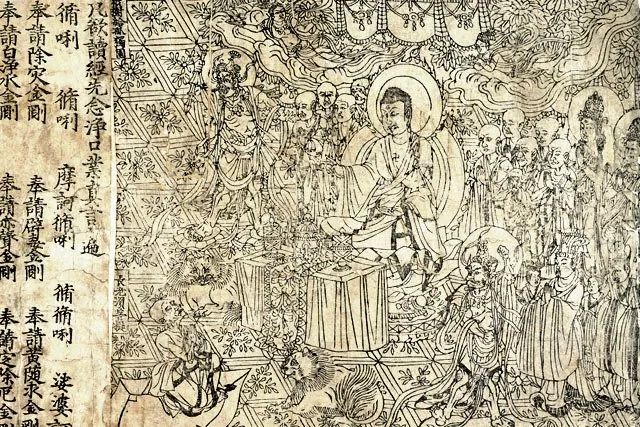 祇樹給孤獨園
長老須菩提
凡欲讀經先念淨口業真言一遍
脩唎 脩唎 摩訶脩唎 脩脩唎 娑婆
奉請除災金剛 奉請辟毒金剛 奉請黃隨求金剛
奉請白淨水金剛 奉請赤聲金剛 奉請定除厄金剛